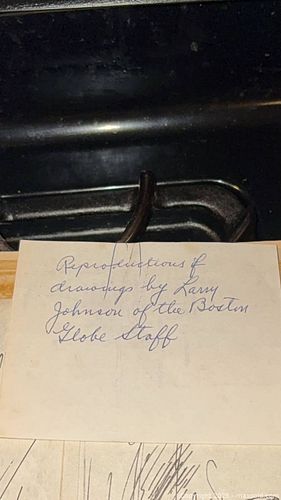 Reproductions of
drawings by Larry
Johnson of the Boston
Globe Staff